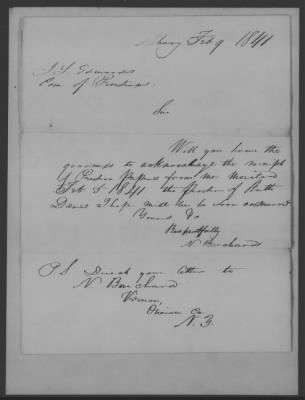 Albany Feb 9 1841
J L Edwards
Com of Pensions
Sir
Will you have the
goodness to acknowledge the receipt
of Pension Papers from me
Feb 1841 the of Ruth
Davis
Yours &c
Respectfully
N Burchard
P.S. Direct your letter to
N Burchard
Vernon,
Oneida Co
N.Y.